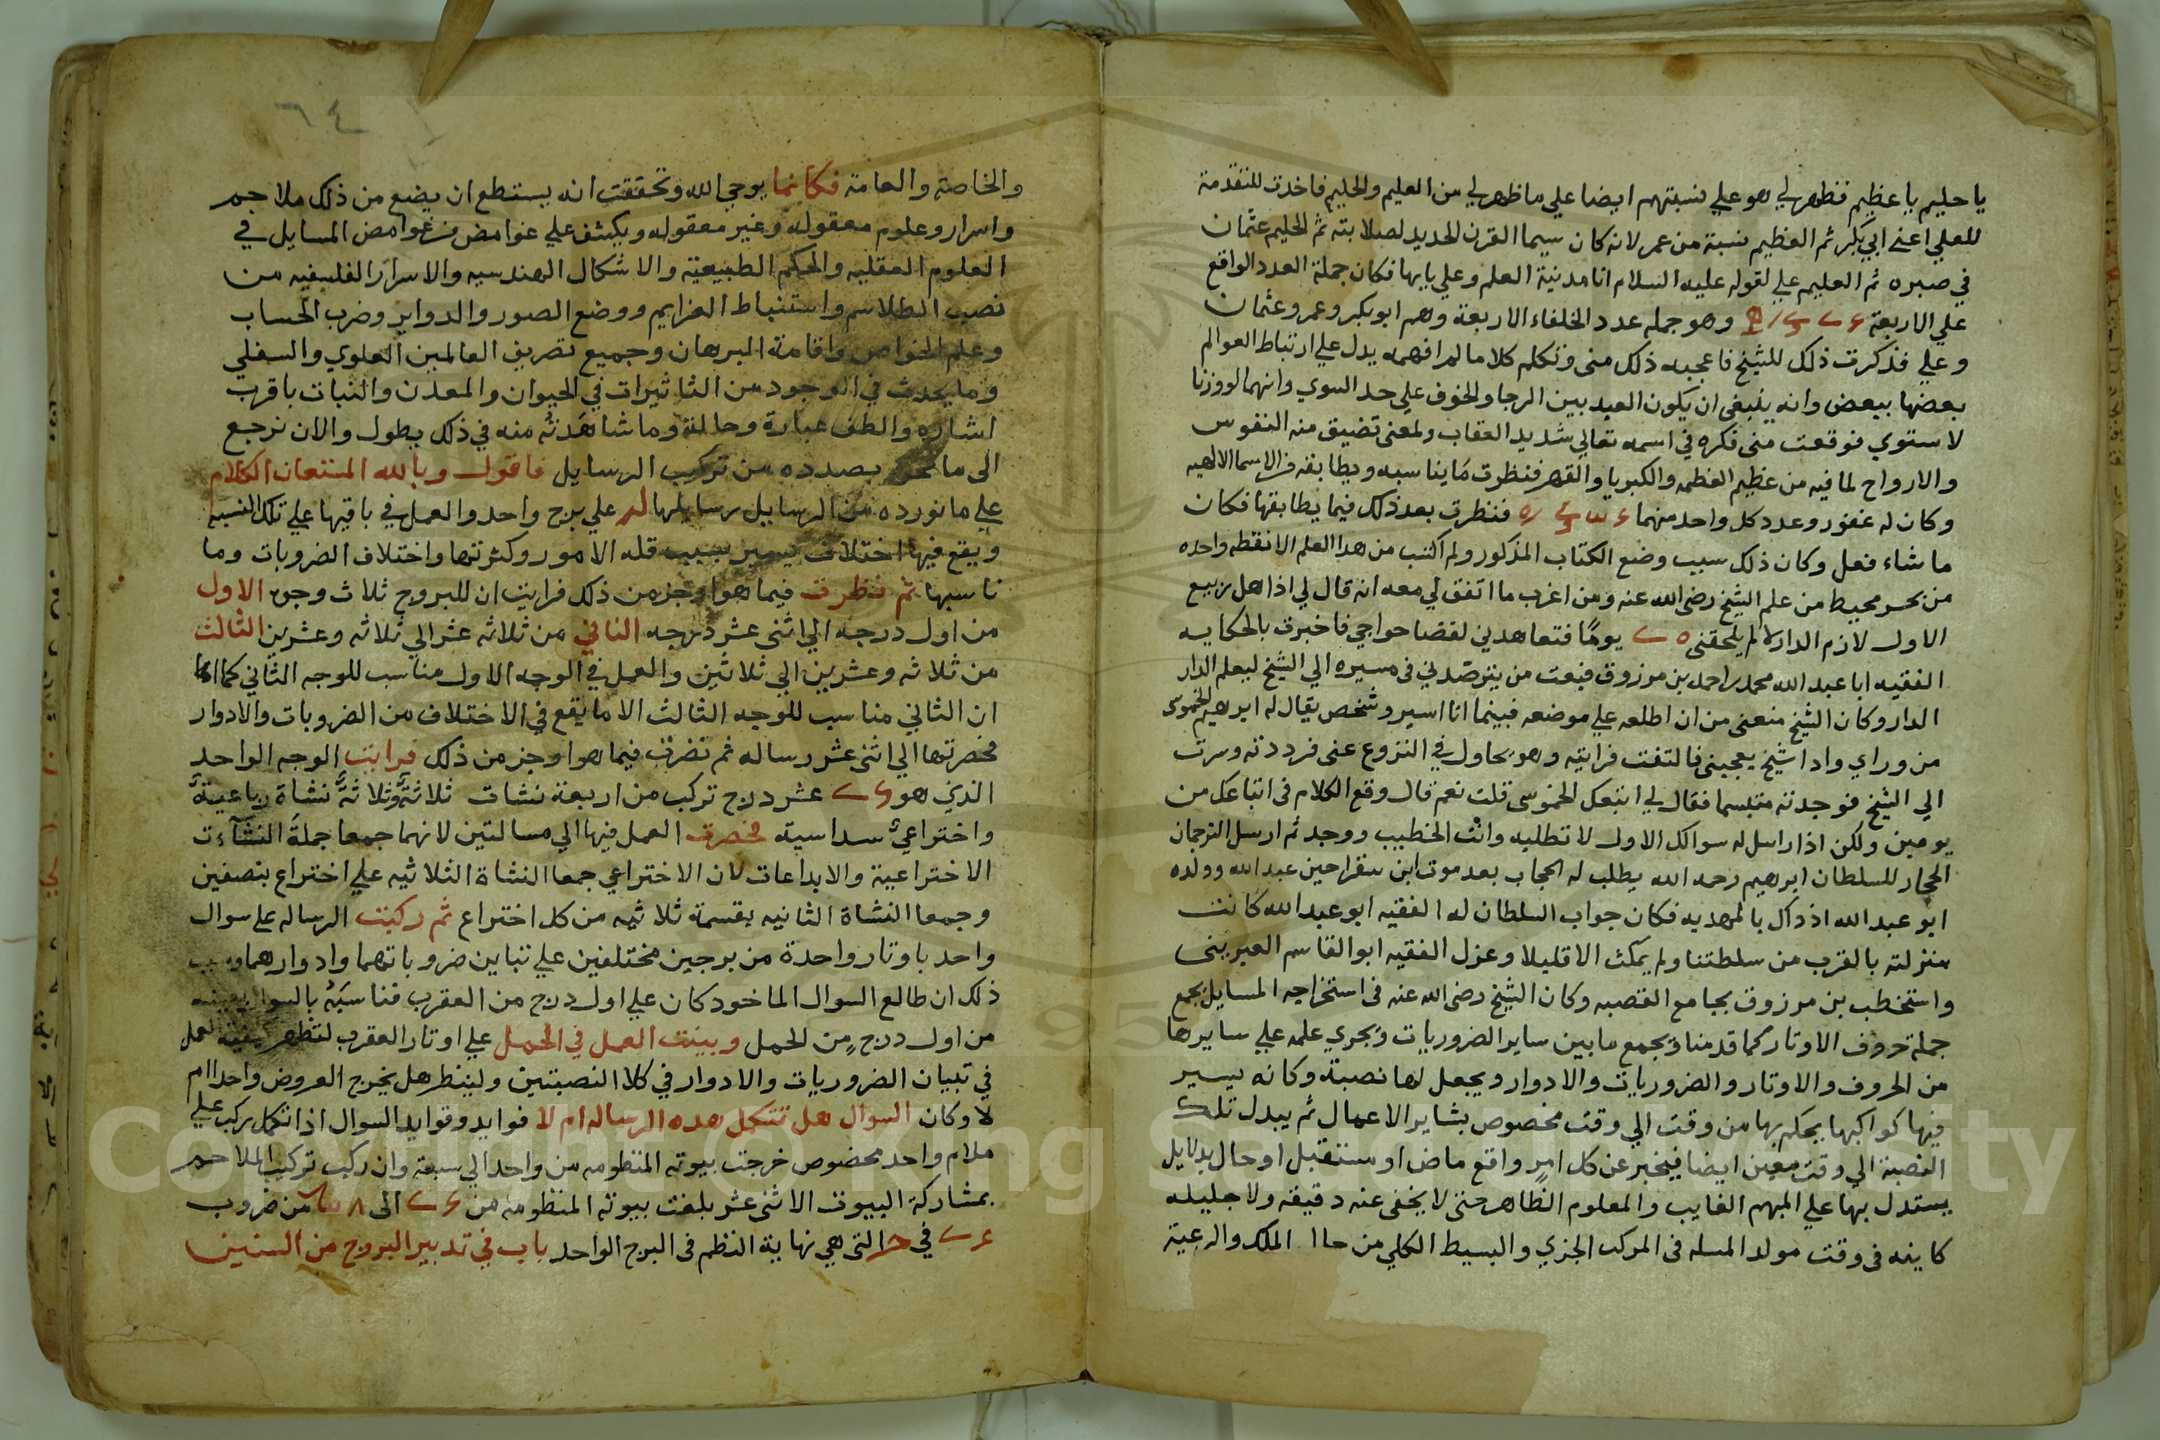 يا حليم يا عظيم فظهر لي هو علي نسبتهم ايضا علي ما ظهر لي من العليم والحليم فاخدت للتقدمة
للعلي اعني ابي بكر ثم العظيم نسبة من عمر لانه كان سيما القرن الحديد لصلابته ثم الحليم عثمان
في صبره ثم العليم علي لقوله عليه السلام انا مدنية العلم وعلي بابها فكان جملة العدد الواقع
علي الاربعة وهو جمله عدد الخلفاء الاربعة وهم ابو بكر وعمر وعثمان
وعلي فذكرت ذلك للشيخ فاعجبه ذلك مني وتكلم كلاما لم افهمه يدل علي ارتباط العوالم
بعضها ببعض وانه ينبغي ان يكون العبد بين الرجا والخوف علي حد السوي وانهما لو وزنا
لاستوي فوقعت مني فكره في اسمه تعالي شديد العقاب ولمعني تضيق منه النفوس
والارواح لما فيه من عظيم العظمه والكبريا والقهر فنظرت ما يناسبه ويطابقه من الاسما الالهيه
وكان له غفور وعدد كل واحد منهما فنظرت بعد ذلك فيما يطابقها فكان
ما شاء فعل وكان ذلك سبب وضع الكتاب المذكور ولم اكتب من هدا العلم الا نقطه واحده
من بحر محيط من علم الشيخ رضي الله عنه ومن اغرب ما اتفق لي معه انه قال لي اذا هل ربيع
الاول لازم الدار لم يلحقني يوما فتعاهدني لقضا حوايجي فاخبرت بالحكايه
الفقيه ابا عبد الله محمد بن احمد بن مرزوق فبعت من يترصدني في مسيره الي الشيخ ليعلم الدار
الدار وكان الشيخ منعني من ان اطلعه علي موضعه فبينما انا اسير وشخص يقال له ابرهيم الخموسي
من وراي وادا شيخ يعجبني فالتفت فرايته وهو يحاول في النزوع عني فرددته وسرت
الي الشيخ فوجدته متبسما فقال لي اتبعك الخموسي قلت نعم قال وقع الكلام في اتباعك من
يومين ولكن اذا راسل له سوالك الاول لا تطلبه وانت الخطيب ووجد ثم ارسل الترجمان
الحجار للسلطان ابرهيم رحمه الله يطلب له الحجاب بعد موت ابن سقراحين عبد الله وولده
ابو عبد الله اذ داك بالمهديه فكان جواب السلطان له الفقيه ابو عبد الله كانت
منزلته بالقرب من سلطتنا ولم يمكث الا قليلا وعزل الفقيه ابو القاسم الغبريني
واستخطب بن مرزوق بجامع القصبه وكان الشيخ رضي الله عنه في استخراجه المسايل يجمع
جملة حروف الاوتار كما قدمنا ويجمع ما بين ساير الضروريات ويجري علمه علي سايرها
من الحروف والاوتار والضروريات والادوار ويجعل لها نصبة وكانه يسير
فيها كواكبها يحكم بها من وقت الي وقت مخصوص بشاير الاعمال ثم يبدل تلك
النصبة الي وقت معين ايضا فيخبر عن كل امر واقع ماض او مستقبل او حال بدلايل
يستدل بها علي المبهم الغايب والمعلوم الظاهر حتي لا يخفي عنه دقيقه ولا جليله
كاينه في وقت مولد المسله في المركب الجزي والبسيط الكلي من حال الملك والرعية
٦٤
والخاصة والعامة فكانما يوحي الله وتحققت انه يستطع ان يضع من ذلك ملاحم
واسرار وعلوم معقوله وغير معقوله ويكشف علي غوامض من غوامض المسايل في
العلوم العقليه والحكم الطبيعية والاشكال الهندسيه والاسرار الفلسفيه من
نصب الطلاسم واستنباط العزايم ووضع الصور والدواير وضرب الحساب
وعلم الخواص واقامة البرهان وجميع تصريف العالمين العلوي والسفلي
وما يحدث في الوجود من التاثيرات في الحيوان والمعدن والنبات باقرب
اشاره والطف عبارة وحالة وما شاهدته منه في ذلك يطول والان نرجع
الي ما نحن بصدده من تركيب الرسايل فاقول وبالله المستعان الكلام
علي ما نورده من الرسايل رسايلها علي برج واحد والعمل في باقيها علي تلك النسبه
ويقع فيها اختلاف يسير بسبب قله الامور وكثرتها واختلاف الضروبات وما
ناسبها ثم نظرت فيما هو اوجز من ذلك فرايت ان للبروج ثلاث وجوه الاول
من اول درجه الي اثني عشر درجه الثاني من ثلاثه عشر الي ثلاثه وعشرين الثالث
من ثلاثه وعشرين الي ثلاثين والعمل في الوجه الاول مناسب للوجه الثاني كما
ان الثاني مناسب للوجه الثالث الا ما يقع في الاختلاف من الضروبات والادوار
فحصرتها الي اثني عشر رساله ثم نضرت فيما هو اوجز من ذلك فرايت الوجه الواحد
الذي هو عشر درج تركب من اربعة نشات ثلاثة وثلاثة نشاة رباعية
واختراعي سداسية فحصرت العمل فيها الي مسالتين لانهما جمعا جملة النشاءت
الاختراعية والابداعات لان الاختراعي جمعا النشاة الثلاثيه علي اختراع بنصفين
وجمعا النشاة الثانيه بقسمة ثلاثيه من كل اختراع ثم ركبت الرساله علي سوال
واحد باوتار واحدة من برجين مختلفين علي تباين ضروباتهما وادوارهما
ذلك ان طالع السوال الماخود كان علي اول درج من العقرب فناسبه بالسوال بعينه
من اول درج من الحمل وبينت العمل في الحمل علي اوتار العقرب لتظهر كيفية العمل
في تبيان الضروريات والادوار في كلا النصبتين ولينظر هل يخرج العروض واحدا ام
لا وكان السوال هل تتكمل هده الرساله ام لا فوايد وقوايد السوال اذا تكمل ركب علي
ملام واحد مخصوص خرجت بيوته المنظومه من واحد الي سبعة وان ركب تركيب الملاحم
بمشاركة البيوت الاثني عشر بلغت بيوته المنظومه من الي من ضروب
في التي هي نهاية النظم في البرج الواحد باب في تدبير البروج من السنين